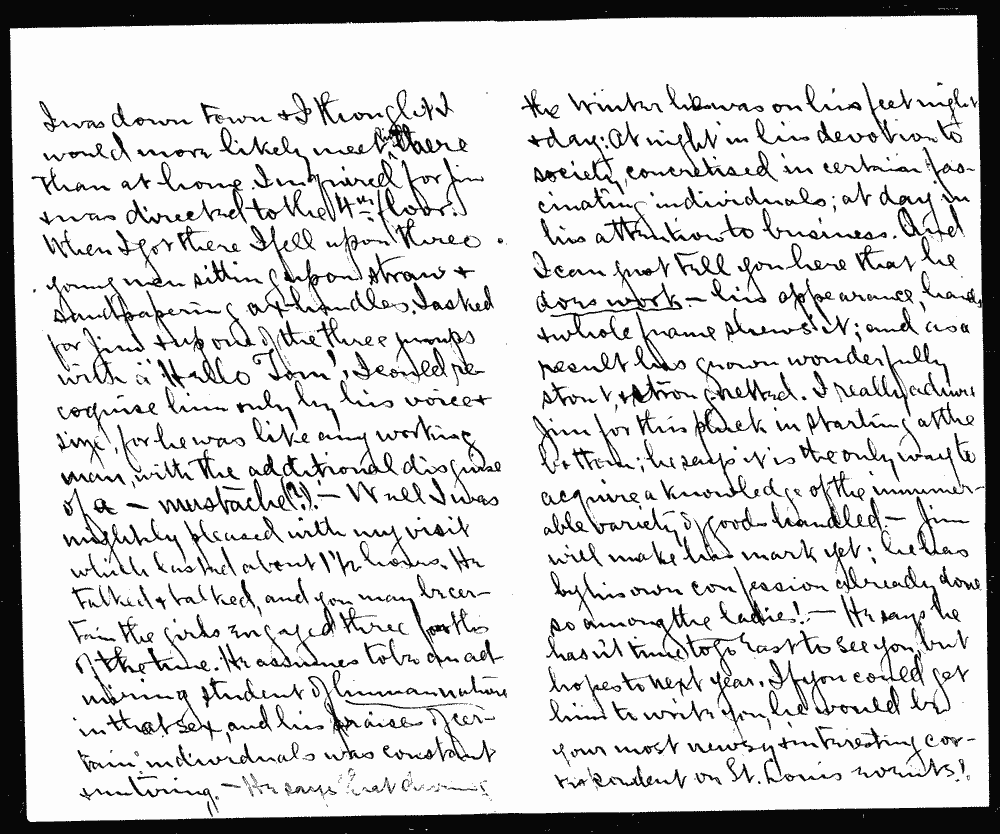 I was down town & I thought I
would more likely meet him there
than at home I inquired for Jim
& was directed to the 4th floor.
When I got there I fell upon three
young men sitting upon straw &
sandpapering ax-handles. I asked
for Jim & up one of the three jumps
with a 'Hallo Tom'; I could re-
cognise him only by his voice &
size, for he was like any working
man, with the additional disguise
of a — mustache(?)! — Well I was
mightily pleased with my visit
which lasted about 1 1/2 hours. He
talked & talked, and you may be cer-
tain the girls engaged three fourths
of the time. He assumes to be an ad-
miring student of human nature
in that sex, and his praise of cer-
tain individuals was constant
& untiring. — He says that during
the Winter he was on his feet night
& day: At night in his devotion to
society, concretised in certain fas-
cinating individuals; at day in
his attention to business. And
I can just tell you here that he
does work — his appearance, hands
& whole frame shews it; and as a
result has grown wonderfully
stout, & strong-necked. I really admire
Jim for this pluck in starting at the
bottom; he says it is the only way to
acquire a knowledge of the innumer-
able variety of goods handled. — Jim
will make his mark yet; he has
by his own confession already done
so among the ladies! — He says he
hasn't time to go East to see you, but
hopes to next year. If you could get
him to write you, he would be
your most newsy & interesting cor-
respondent on St. Louis events!